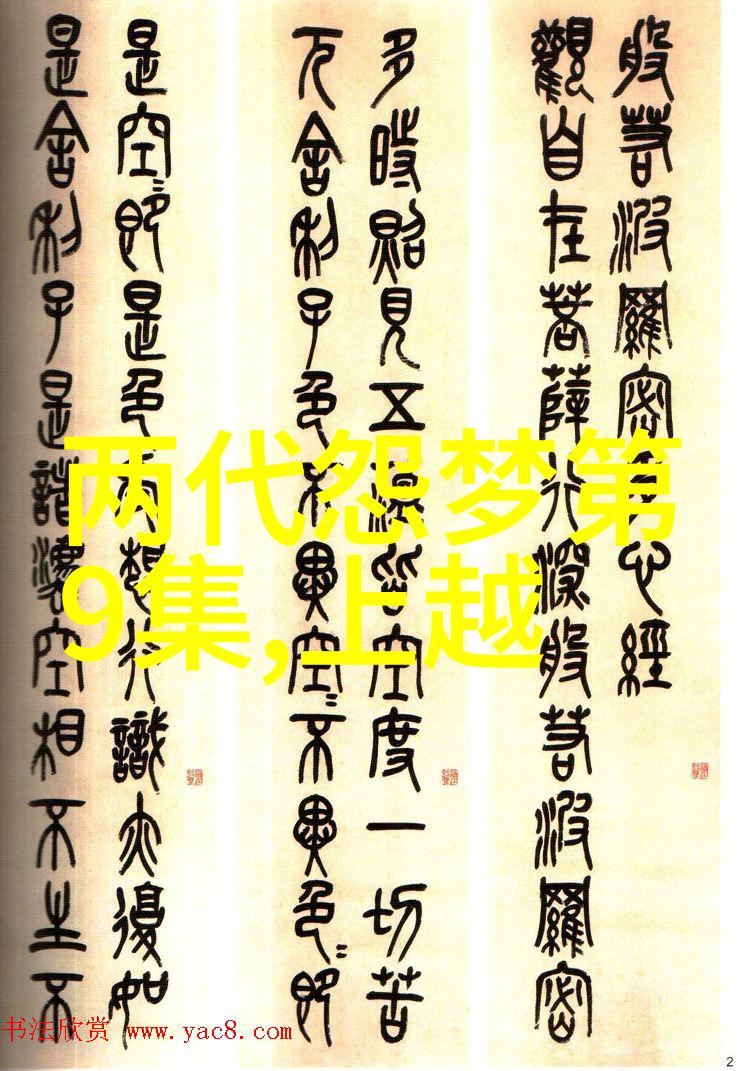 般若波羅密多心經
觀自在菩薩行深般若波羅密
多時照見五蘊皆空度一切苦
厄舍利子色不異空〻不異色〻即
是空〻即是色受想行識亦復如
是舍利子是諸法空相不生不
两代怨梦第
9集,上越
书法欣赏 www.yac8.com
2